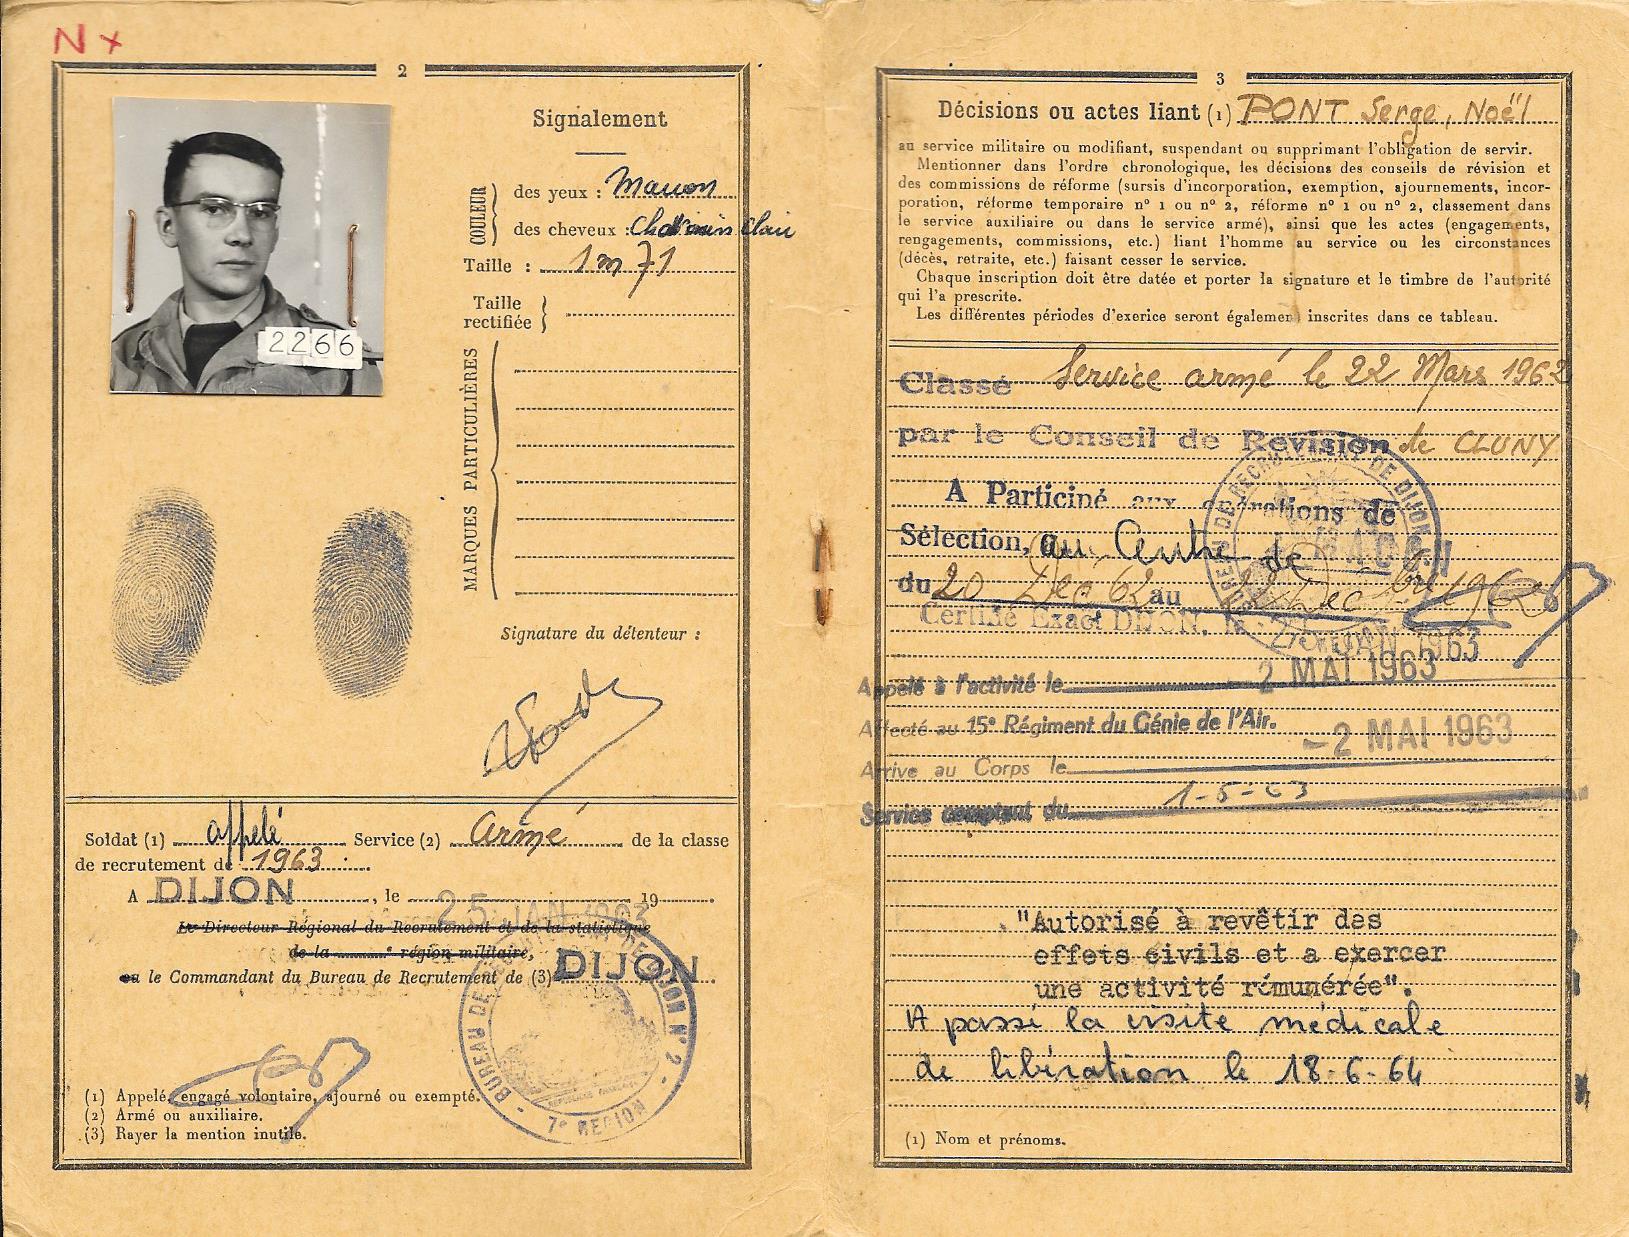 N x
2
Signalement
COULEUR
des yeux : Marron
des cheveux : Chatain Clair
Taille : 1m71
Taille
rectifiée
MARQUES PARTICULIÈRES
2266
Signature du détenteur :
Soldat (1) appelé Service (2) Armé de la classe
de recrutement de 1963
A DIJON, le 25 JAN 1963 19
Le Directeur Régional du Recrutement et de la statistique
de la e région militaire,
ou le Commandant du Bureau de Recrutement de (3) DIJON.
BUREAU DE RECRUTEMENT DE DIJON N° 2 - 7e REGION
(1) Appelé, engagé volontaire, ajourné ou exempté.
(2) Armé ou auxiliaire.
(3) Rayer la mention inutile.
3
Décisions ou actes liant (1) PONT Serge, Noël
au service militaire ou modifiant, suspendant ou supprimant l'obligation de servir.
Mentionner dans l'ordre chronologique, les décisions des conseils de révision et
des commissions de réforme (sursis d'incorporation, exemption, ajournements, incor-
poration, réforme temporaire n° 1 ou n° 2, réforme n° 1 ou n° 2, classement dans
le service auxiliaire ou dans le service armé), ainsi que les actes (engagements,
rengagements, commissions, etc.) liant l'homme au service ou les circonstances
(décès, retraite, etc.) faisant cesser le service.
Chaque inscription doit être datée et porter la signature et le timbre de l'autorité
qui l'a prescrite.
Les différentes périodes d'exerice seront également inscrites dans ce tableau.
Classé Service armé le 22 Mars 1962
par le Conseil de Revision de CLUNY
A Participé aux opérations de
Sélection, au Centre de MACON
du 20 Dec 62 au 22 Décbre 1962
Certifié Exact DIJON, le JAN 1963
BUREAU DE RECRUTEMENT DE DIJON
Appelé à l'activité le 2 MAI 1963
Affecté au 15e Régiment du Génie de l'Air.
Arrive au Corps le -2 MAI 1963
Service comptant du 1-5-63
"Autorisé à revêtir des
effets civils et a exercer
une activité rémunérée".
A passé la visite médicale
de libération le 18-6-64
(1) Nom et prénoms.